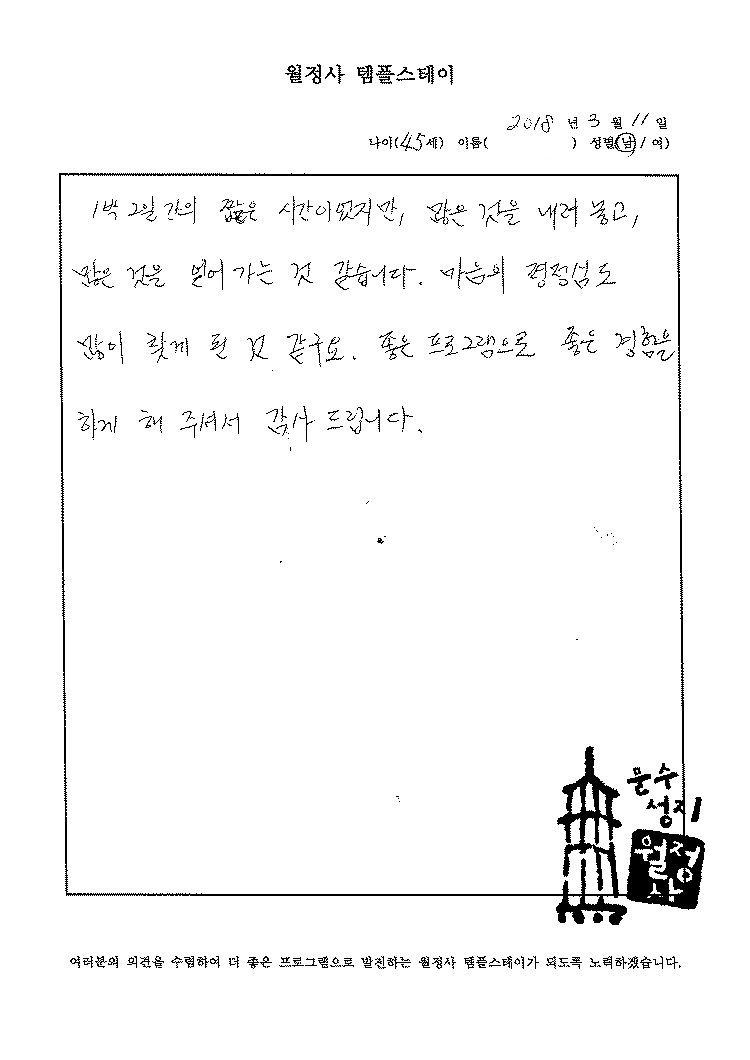 월정사 템플스테이
2018 년 3 월 11 일
나이(45세) 이름( ) 성별(남/여)
1박 2일간의 짧은 시간이었지만, 많은 것을 내려 놓고,
많은 것을 얻어 가는 것 같습니다. 마음의 평정심도
많이 찾게 된 것 같구요. 좋은 프로그램으로 좋은 경험을
하게 해 주셔서 감사 드립니다.
문수
성지
월정
사
여러분의 의견을 수렴하여 더 좋은 프로그램으로 발전하는 월정사 템플스테이가 되도록 노력하겠습니다.